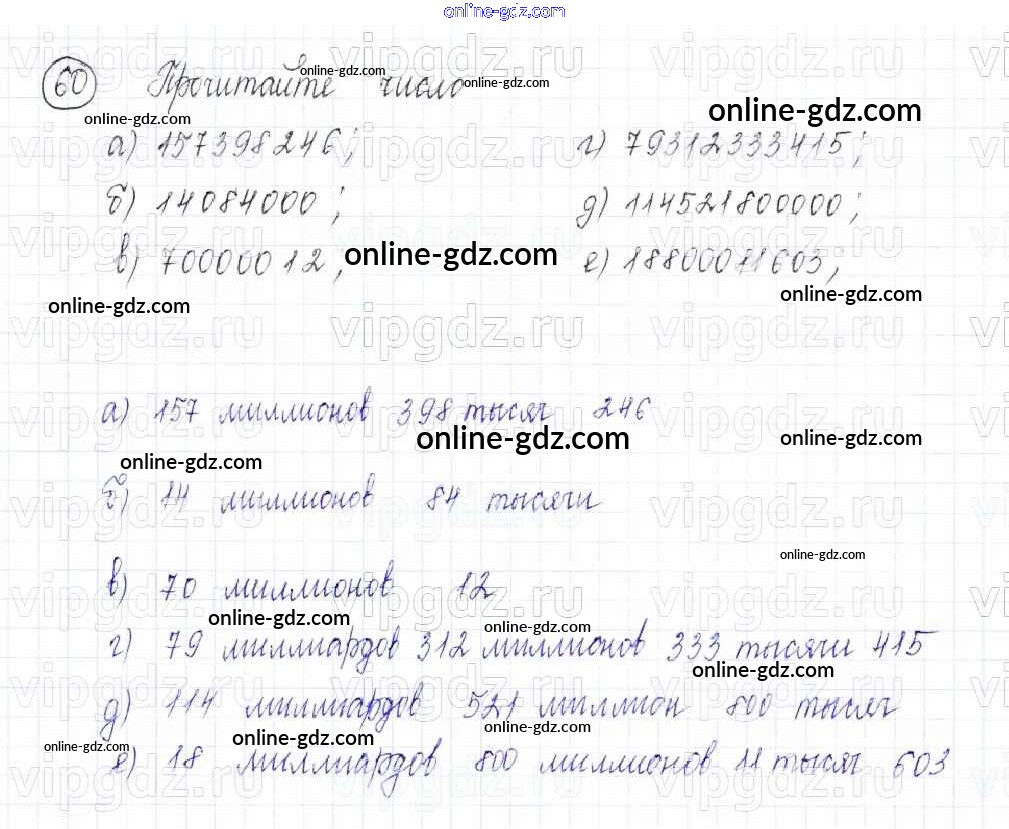 online-gdz.com
60 Прочитайте число
а) 157398246; г) 79312333415;
б) 14084000; д) 114521800000;
в) 70000012; е) 18800011603;
а) 157 миллионов 398 тысяч 246
б) 14 миллионов 84 тысячи
в) 70 миллионов 12
г) 79 миллиардов 312 миллионов 333 тысячи 415
д) 114 миллиардов 521 миллион 800 тысяч
е) 18 миллиардов 800 миллионов 11 тысяч 603